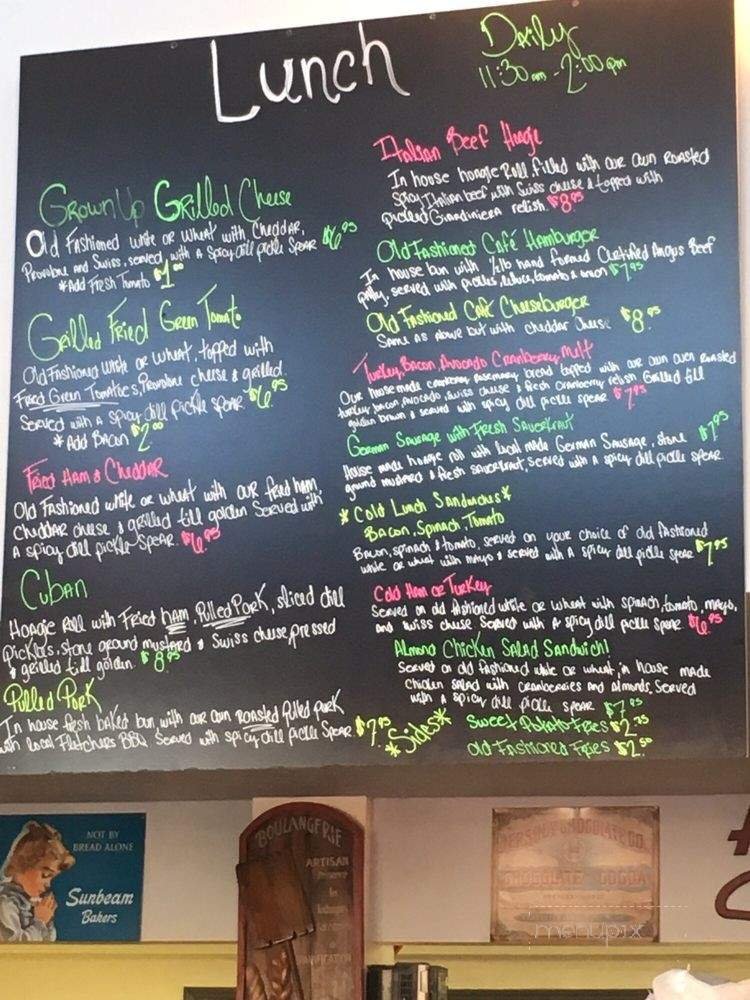 Lunch
Daily
11:30 am - 2:00 pm
GrownUp Grilled Cheese
Old Fashioned white or wheat with Cheddar,
Provolone and Swiss, served with a spicy dill pickle spear $6.95
*Add Fresh Tomato $1.00
Grilled Fried Green Tomato
Old Fashioned white or wheat, topped with
Fried Green Tomatoes, Provolone cheese & grilled.
Served with a spicy dill pickle spear $6.95
*Add Bacon $2.00
Fried Ham & Cheddar
Old Fashioned white or wheat with our fried ham,
Cheddar cheese & grilled till golden Served with
a spicy dill pickle spear. $6.95
Cuban
Hoagie Roll with Fried ham, Pulled Pork, sliced dill
pickles, stone ground mustard & Swiss cheese pressed
& grilled till golden. $8.95
Pulled Pork
In house fresh baked bun with our own roasted pulled pork
with local Fletchers BBQ Served with spicy dill pickle spear $7.95
Italian Beef Hoagie
In house hoagie Roll filled with our own roasted
spicy Italian beef with Swiss cheese & topped with
pickled Giardiniera relish. $8.95
Old Fashioned Café Hamburger
In house bun with 1/2lb hand formed Certified Angus Beef
patty, served with pickles, lettuce, tomato & onion $7.95
Old Fashioned Café Cheeseburger
Same as above but with cheddar cheese $8.95
Turkey, Bacon, Avocado Cranberry Melt
Our house made cranberry rosemary bread topped with our own oven roasted
turkey, bacon, avocado, swiss cheese & fresh cranberry relish Grilled till
golden brown & served with spicy dill pickle spear $7.95
German Sausage with Fresh Sauerkraut $7.95
House made hoagie roll with local made German Sausage, stone
ground mustard & fresh sauerkraut, served with a spicy dill pickle spear.
*Cold Lunch Sandwiches*
Bacon, Spinach, Tomato
Bacon, spinach & tomato, served on your choice of old fashioned
white or wheat with mayo & served with a spicy dill pickle spear $7.95
Cold Ham or Turkey
Served on old fashioned white or wheat with spinach, tomato, mayo,
and swiss cheese served with a spicy dill pickle spear $6.95
Almond Chicken Salad Sandwich!
Served on old fashioned white or wheat, in house made
chicken salad with cranberries and almonds, served
with a spicy dill pickle spear $7.95
*Sides*
Sweet Potato Fries $2.75
Old Fashioned Fries $2.50
NOT BY
BREAD ALONE
Sunbeam
Bakers
BOULANGERIE
ARTISAN
CHOCOLATE COCOA
menupix